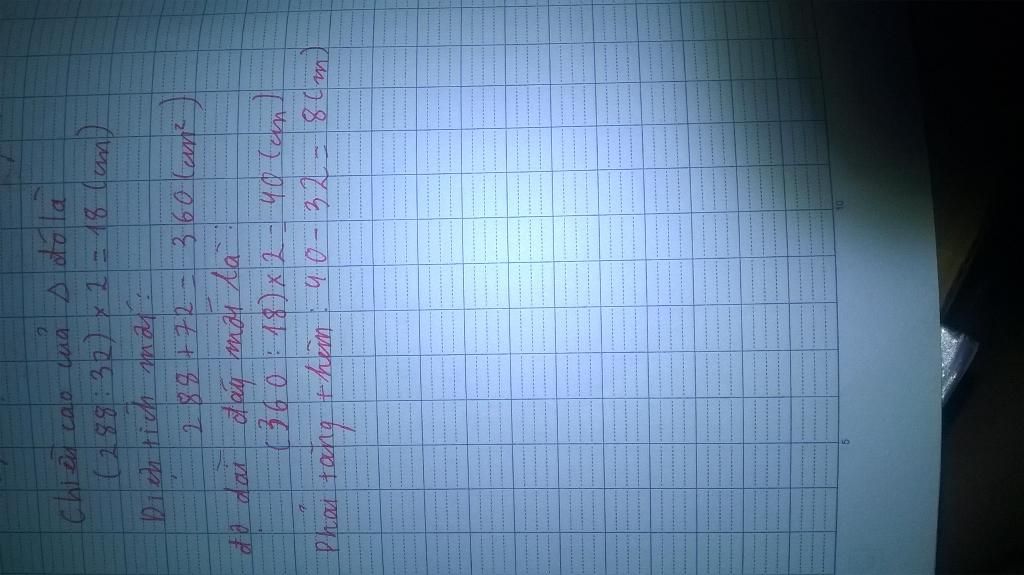 Chiều cao của Δ đó là
(288 : 32) x 2 = 18 (cm)
Diện tích mới:
288 + 72 = 360 (cm²)
độ dài đáy mới là:
(360 : 18) x 2 = 40 (cm)
Phải tăng thêm: 40 - 32 = 8 (m)
10
5